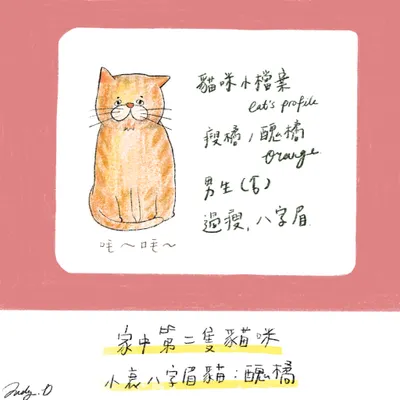 貓咪小檔案
cat's profile
瘦橘/醜橘
orange
男生(舍)
過瘦,八字眉
吒~吒~
家中第二隻貓咪
小哀八字眉貓:醜橘
Judy.D